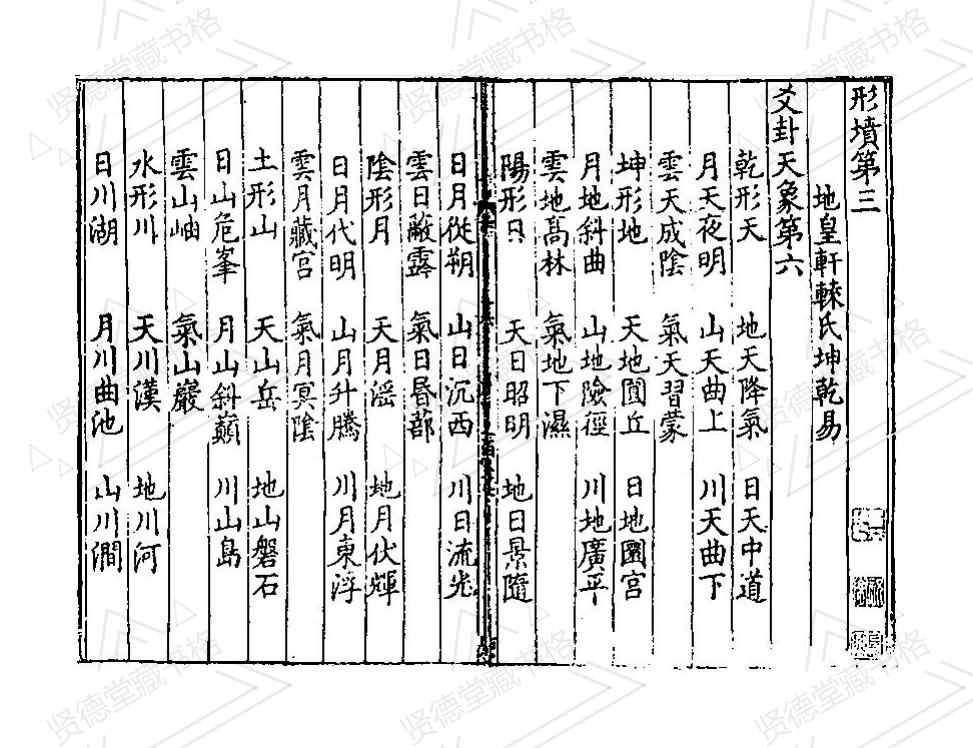 形墳第三
地皇軒轅氏坤乾易
爻卦天象第六
乾形天 地天降氣 日天中道
月天夜明 山天曲上 川天曲下
雲天成陰 氣天習蒙
坤形地 天地圓丘 日地圜宮
月地斜曲 山地險徑 川地廣平
雲地高林 氣地下濕
陽形日 天日昭明 地日景隨
日月從朔 山日沉西 川日流光
雲日蔽露 氣日昬蔀
陰形月 天月淫 地月伏輝
日月代明 山月升騰 川月東浮
雲月藏宮 氣月冥陰
土形山 天山岳 地山磐石
日山危峯 月山斜巔 川山島
雲山岫 氣山巖
水形川 天川漢 地川河
日川湖 月川曲池 山川澗
贤德堂藏书格